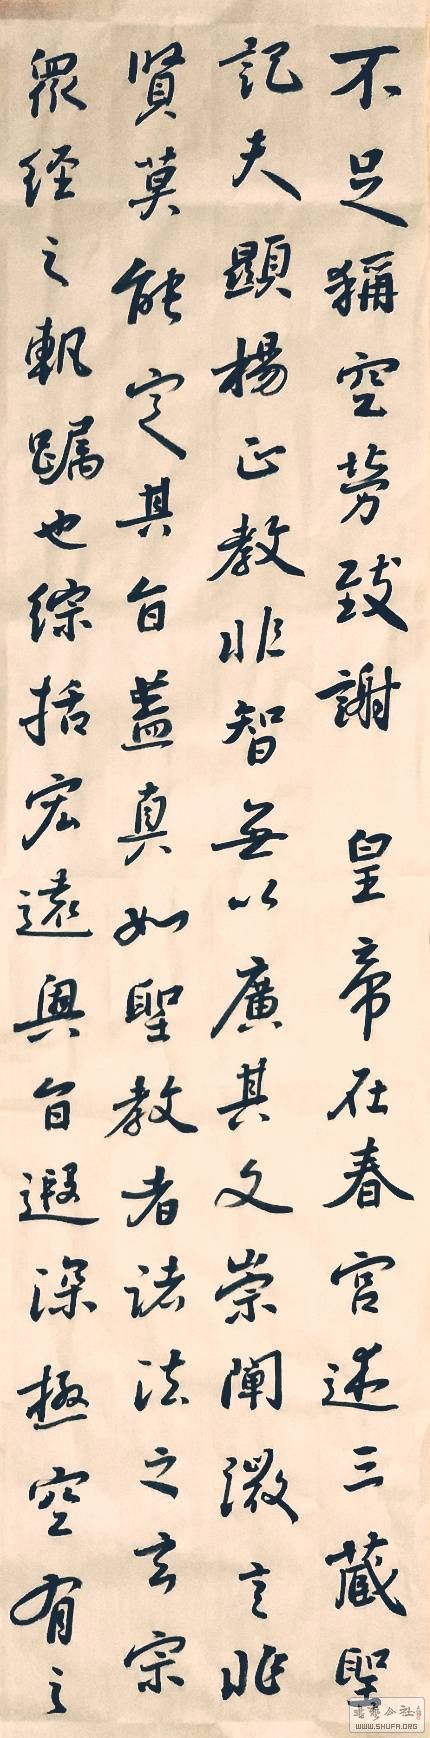 不足稱空勞致謝 皇帝在春宮述三藏聖
記夫顯楊正教非智無以廣其文崇闡微言非
賢莫能定其旨蓋真如聖教者諸法之玄宗
眾經之軌躅也綜括宏遠奧旨遐深極空有之
書法公社
WWW.SHUFA.ORG